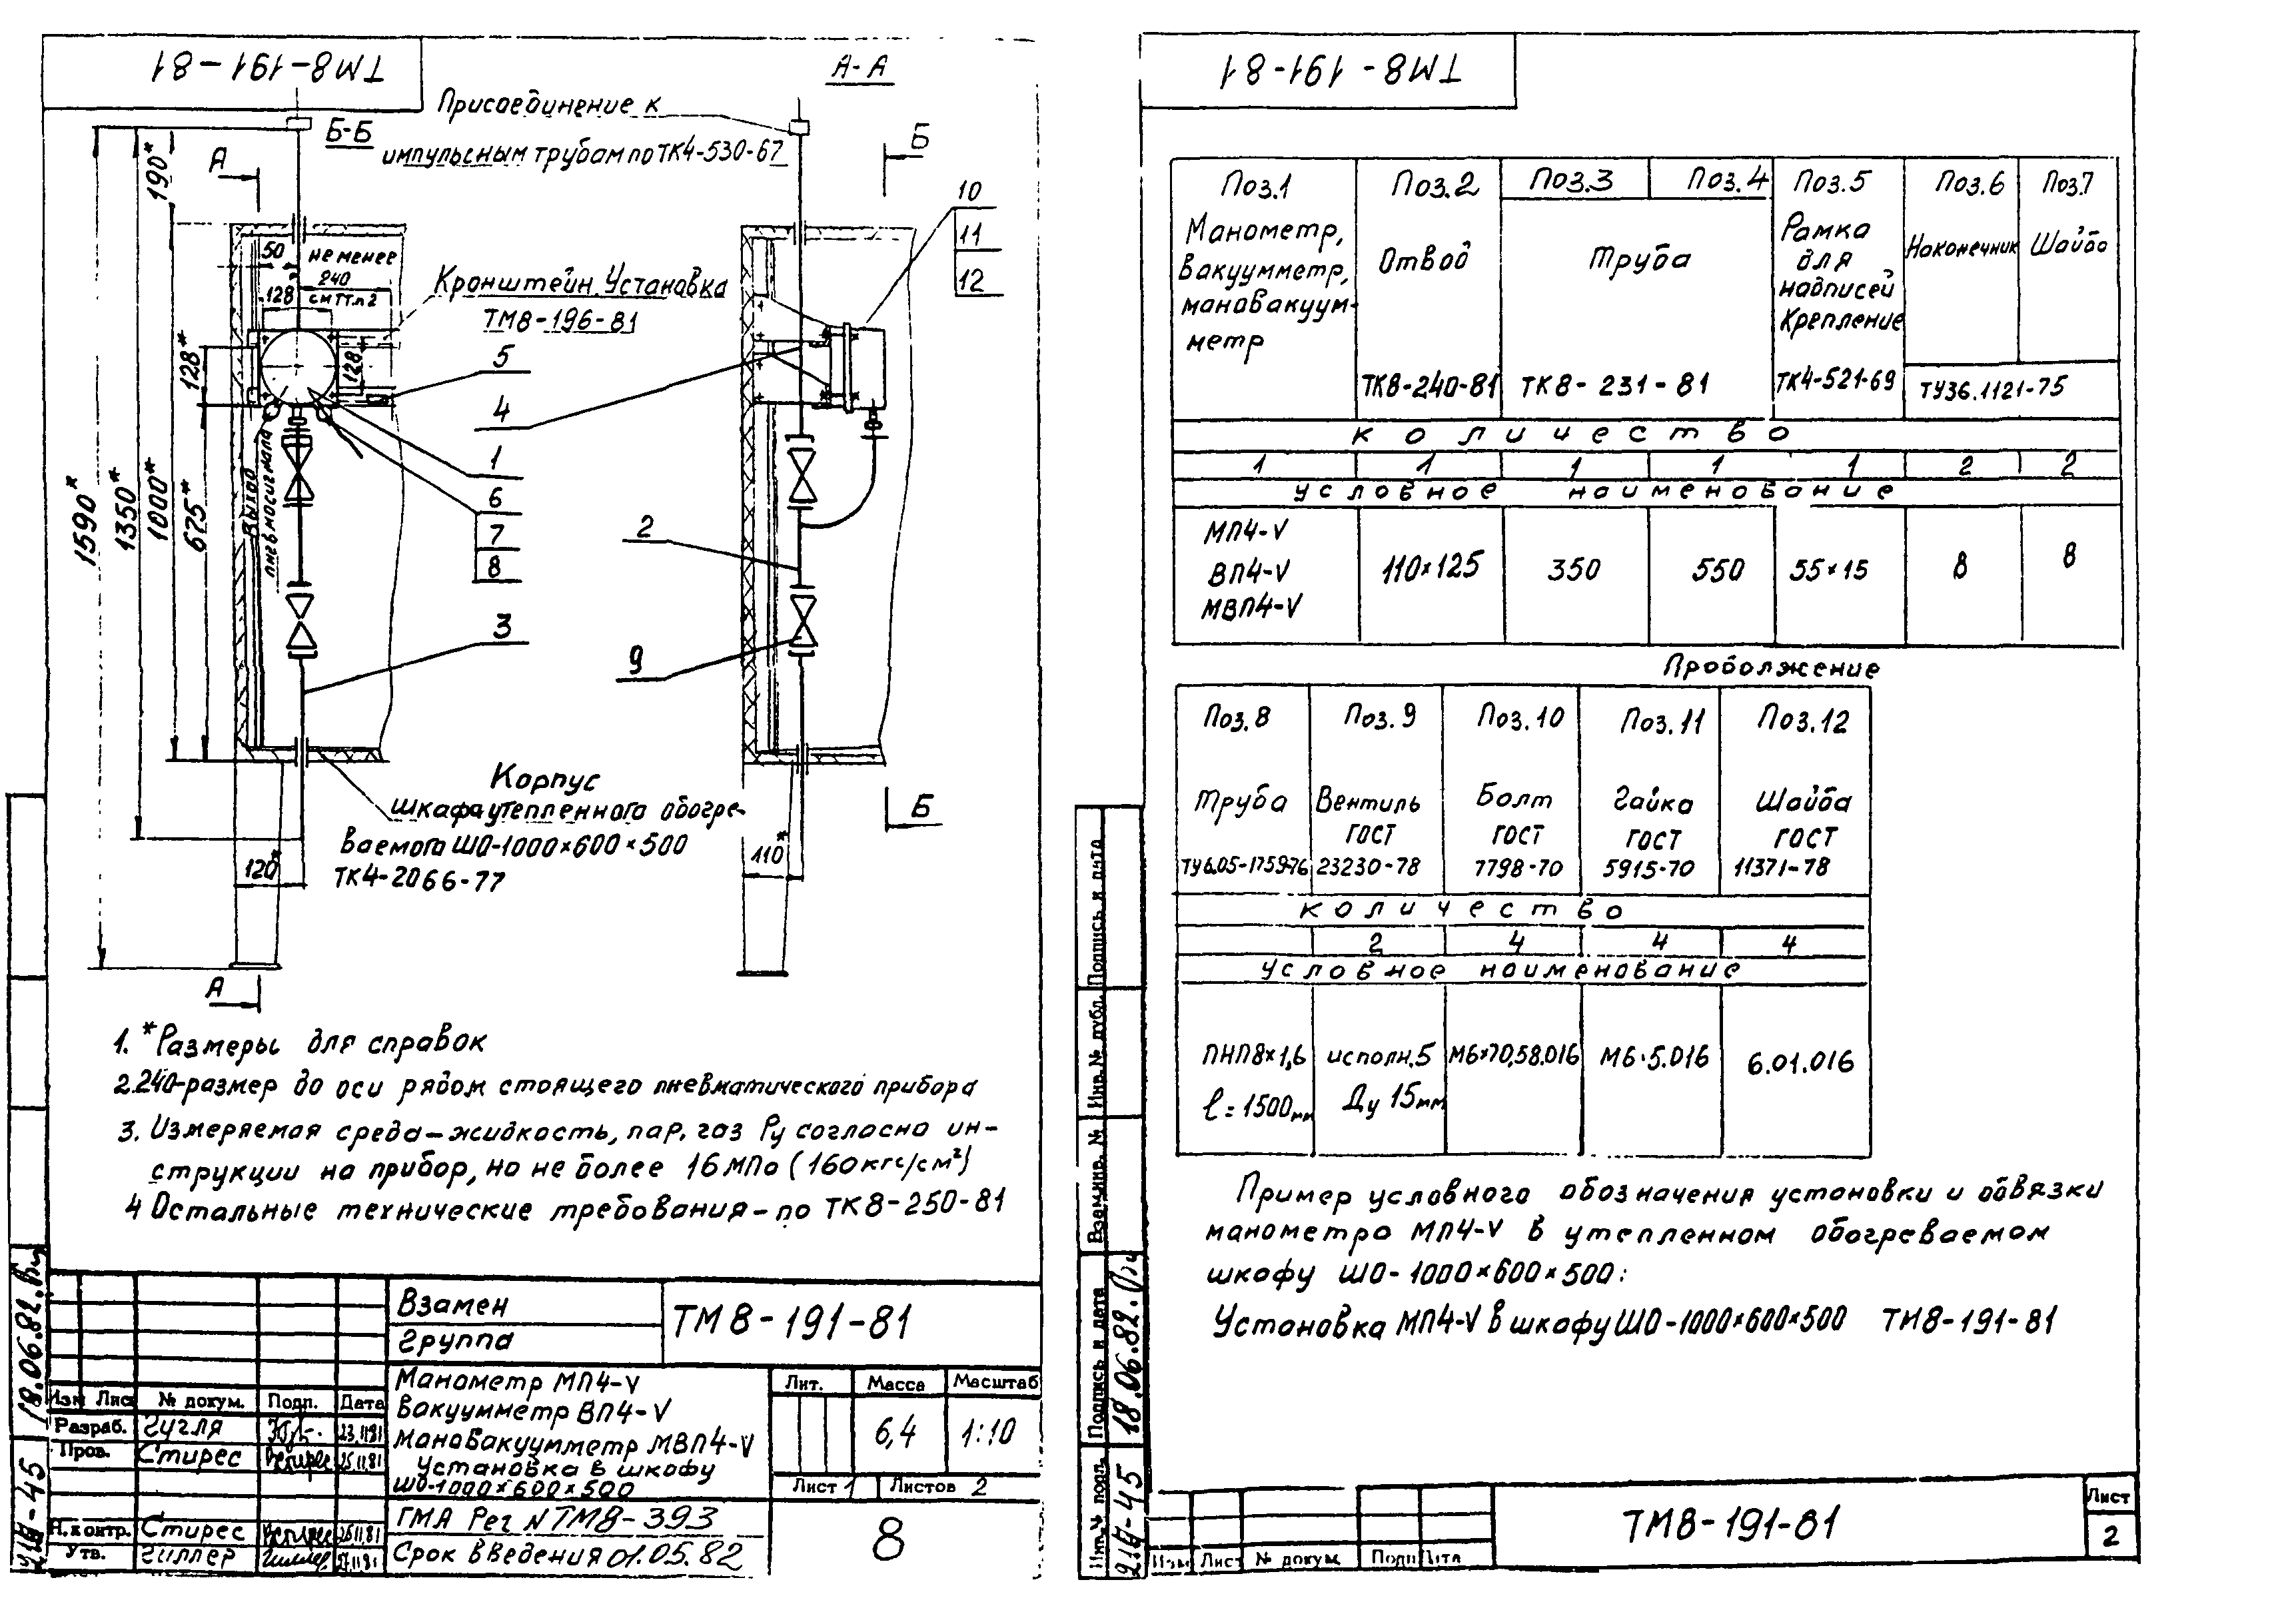 ТМ8-191-81
А-А
Присоединение к
импульсным трубам по ТК4-530-67
Б-Б
А
Б
190*
50
не менее
240
см ТТ.п2
128
128*
128
Кронштейн. Установка
ТМ8-196-81
10
11
12
5
4
1
6
7
8
2
3
9
1590*
1350*
1000*
675*
Выход
пневмосигнала
Корпус
шкафа утепленного обогре-
ваемого ШО-1000×600×500
ТК4-2066-77
120*
110*
Б
А
1. *Размеры для справок
2.240-размер до оси рядом стоящего пневматического прибора
3. Измеряемая среда-жидкость, пар, газ Ру согласно ин-
струкции на прибор, но не более 16 МПа (160 кгс/см²)
4 Остальные технические требования-по ТК8-250-81
Взамен
Группа
ТМ8-191-81
Манометр МП4-V
Вакуумметр ВП4-V
Мановакуумметр МВП4-V
Установка в шкафу
ШО-1000×600×500
Лит. Масса Масштаб
6,4 1:10
Лист 1 Листов 2
Изм Лист № докум. Подп. Дата
Разраб. Гугля 23.11.81
Пров. Стирес 25.11.81
Н.контр. Стирес 26.11.81
Утв. Гиллер
ГМА Рег N ТМ8-393
Срок введения 01.05.82
8
18.06.82.
ТМ8-191-81
Поз.1 Поз.2 Поз.3 Поз.4 Поз.5 Поз.6 Поз.7
Манометр,
вакуумметр,
мановакуум-
метр
Отвод
ТК8-240-81
Труба
ТК8-231-81
Рамка
для
надписей
Крепление
ТК4-521-69
Наконечник Шайба
ТУ36.1121-75
количество
1 1 1 1 1 2 2
условное наименование
МП4-V
ВП4-V
МВП4-V
110×125 350 550 55×15 8 8
Продолжение
Поз.8 Поз.9 Поз.10 Поз.11 Поз.12
Труба Вентиль Болт Гайка Шайба
ГОСТ ГОСТ ГОСТ ГОСТ
ТУ6.05-1759-76 23230-78 7798-70 5915-70 11371-78
количество
2 4 4 4
условное наименование
ПНП8×1,6 исполн.5 М6×70,58.016 М6.5.016 6.01.016
ℓ=1500мм Ду 15мм
Пример условного обозначения установки и обвязки
манометра МП4-V в утепленном обогреваемом
шкафу ШО-1000×600×500:
Установка МП4-V в шкафу ШО-1000×600×500 ТМ8-191-81
Подпись и дата
Инв.№ дубл.
Взам.инв. №
Подпись и дата
18.06.82.
Инв.№ подл.
Изм Лист № докум. Подп Дата
ТМ8-191-81
Лист
2